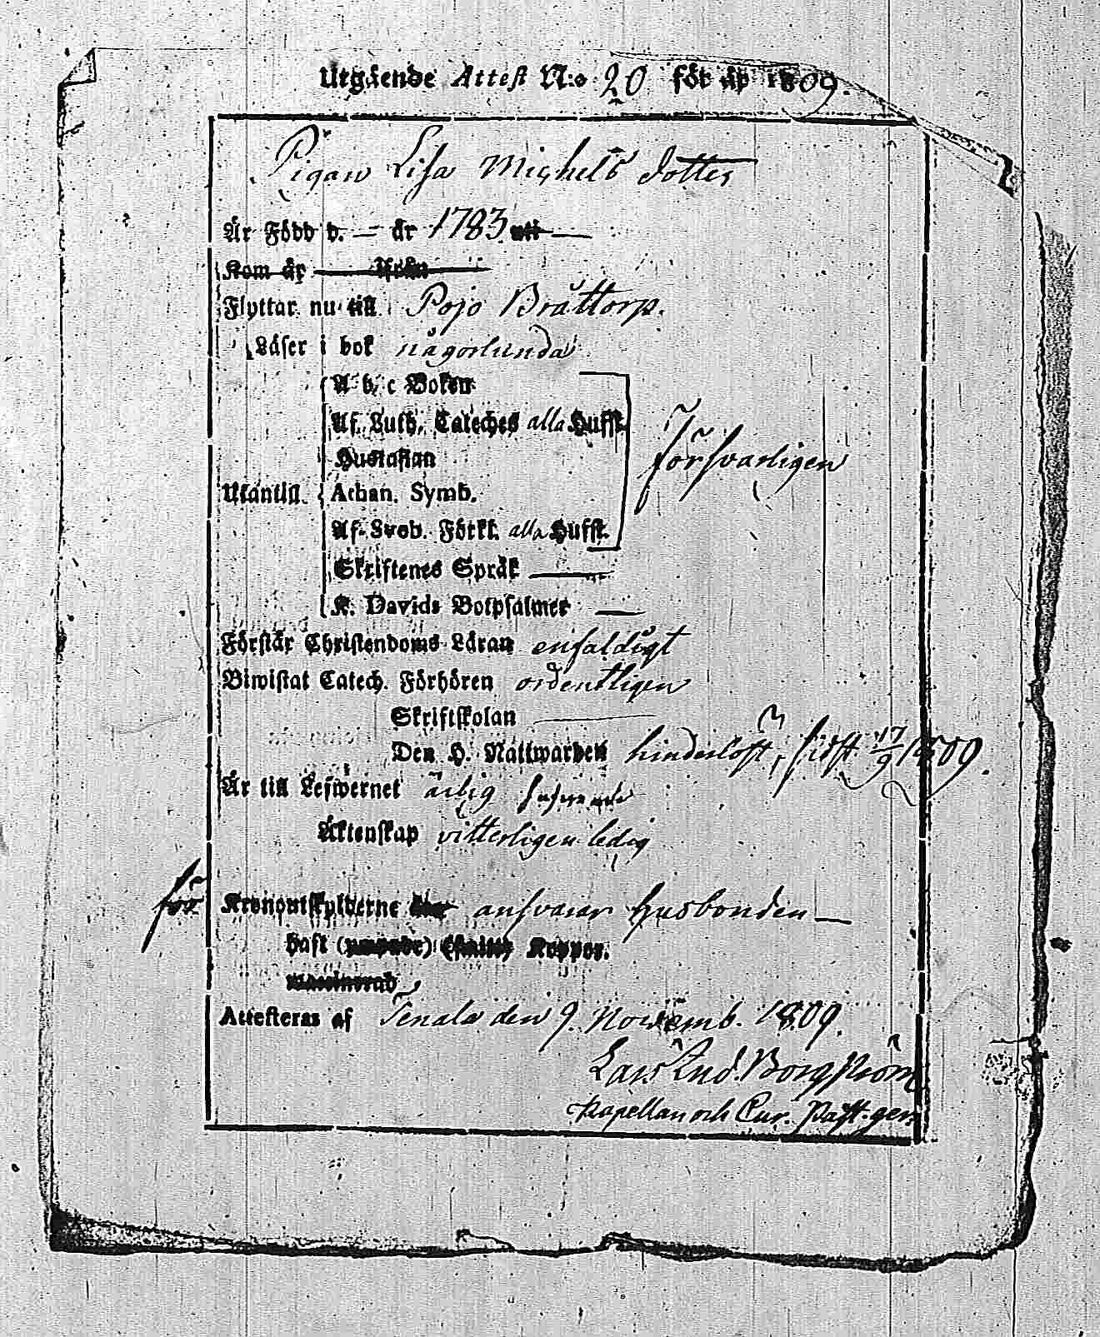 Utgående Attest N:o 20 för år 1809.
Pigan Lisa Michels dotter
Är Född d. — år 1783 uti —
Kom år — ifrån
Flyttar nu till Pojo Bråttorp.
Läser i bok någorlunda
A b, c Boken
Af Luth. Cateches alla Hufst.
Hustaflan
Försvarligen
Utantill Athan. Symb.
Af Sveb. Förkl. alla Hufst.
Skriftenes Språk —
K. Davids Botpsalmer —
Förstår Christendoms Läran enfaldigt
Biwistat Catech. Förhören ordentligen
Skriftskolan —
Den H. Nattwarden hinderlöst, sidst 17/9 1809.
Är till Lefwernet ärlig
Äktenskap vitterligen ledig
för Kronoutskylderne answarar husbonden —
haft Koppor.
Attesteras af Tenala den 9. Novemb. 1809.
Lars And. Borgström
Kapellan och Cur. Past. gen.